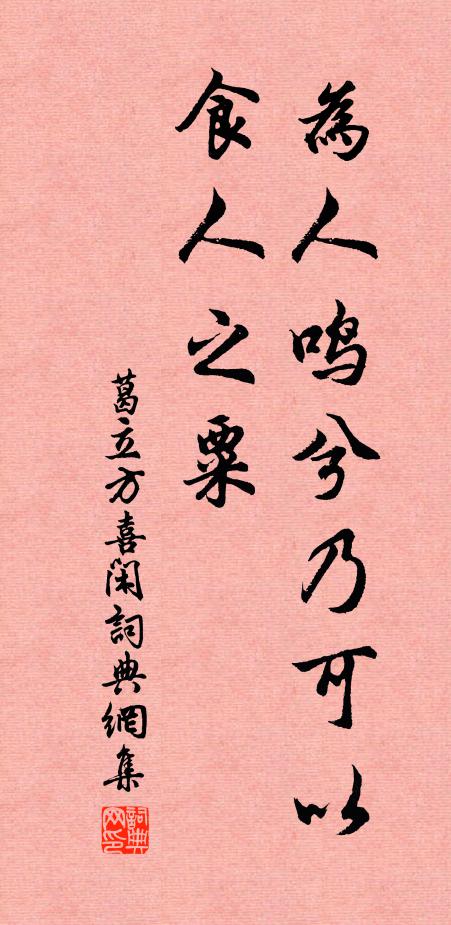 為人鳴兮乃可以
食人之粟
葛立方喜闲詞典網集
詞典
网印